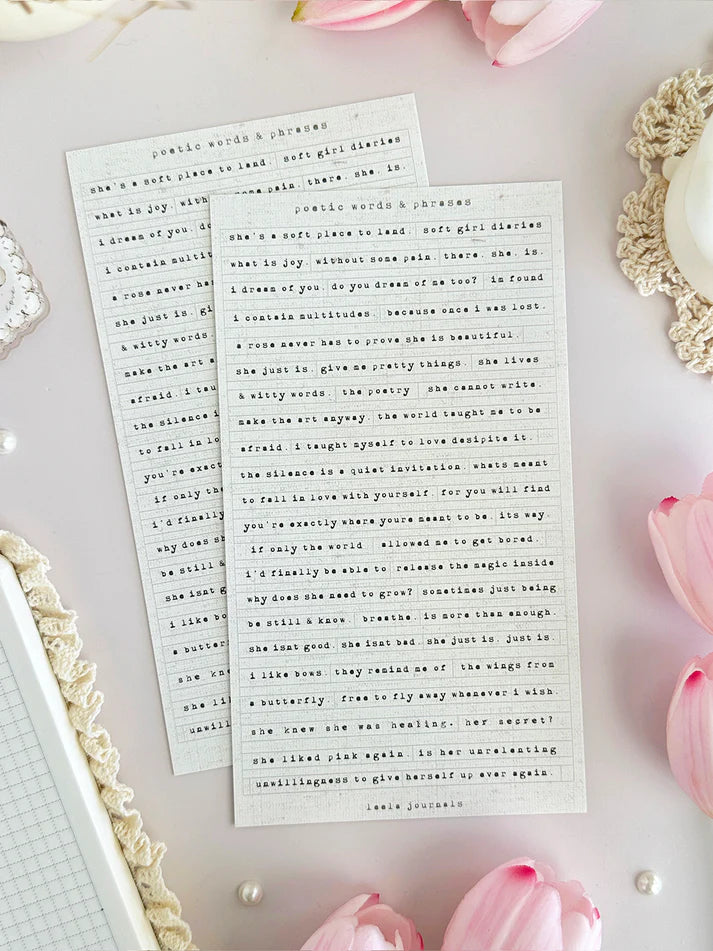 poetic words & phrases
she's a soft place to land. soft girl diaries
what is joy. with some pain. there. she. is.
i dream of you. do
i contain multit
a rose never has
she just is. gi
& witty words.
make the art a
afraid. i tau
the silence i
to fall in lo
you're exact
if only the
i'd finally
why does sh
be still &
she isnt g
i like bo
a butter
she kne
she lik
unwill
poetic words & phrases
she's a soft place to land. soft girl diaries
what is joy. without some pain. there. she. is.
i dream of you. do you dream of me too? im found
i contain multitudes. because once i was lost.
a rose never has to prove she is beautiful.
she just is. give me pretty things. she lives
& witty words. the poetry she cannot write.
make the art anyway. the world taught me to be
afraid. i taught myself to love desipite it.
the silence is a quiet invitation. whats meant
to fall in love with yourself. for you will find
you're exactly where youre meant to be. its way.
if only the world allowed me to get bored.
i'd finally be able to release the magic inside
why does she need to grow? sometimes just being
be still & know. breathe. is more than enough.
she isnt good. she isnt bad. she just is. just is.
i like bows. they remind me of the wings from
a butterfly. free to fly away whenever i wish.
she knew she was healing. her secret?
she liked pink again. is her unrelenting
unwillingness to give herself up ever again.
leela journals